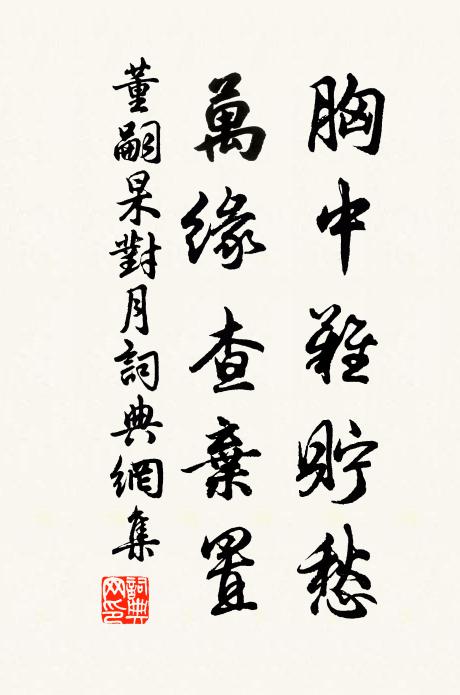 胸中難貯愁
萬緣查棄置
董嗣杲對月詞典網集
詞典網印